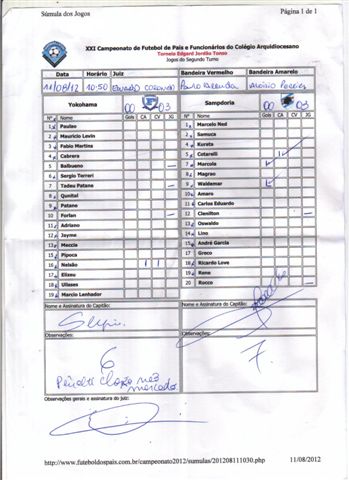 Súmula dos Jogos Página 1 de 1
XXI Campeonato de Futebol de Pais e Funcionários do Colégio Arquidiocesano
Torneio Edgard Jordão Tonso
Jogos do Segundo Turno
Data Horário Juiz Bandeira Vermelho Bandeira Amarelo
11/08/12 10:50
Yokohama 00 03 Sampdoria 00 03
Nº Nome Gols CA CV JG Nº Nome Gols CA CV JG
1 Paulao 1 Marcelo Ned
2 Mauricio Levin 2 Samuca
3 Fabio Martins 4 Kurata
4 Cabrera 5 Cetarelli
5 Balbueno 7 Marcola
6 Sergio Terreri 8 Magrao
7 Tadeu Patane 9 Waldemar
8 Qunital 10 Amaro
9 Patane 11 Carlos Eduardo
10 Forlan 12 Clenilton
11 Adriano 13 Oswaldo
12 Jayme 14 Lino
13 Meccia 15 André Garcia
15 Pipoca 17 Greco
16 Nelsão 18 Ricardo Love
17 Elizeu 19 Rene
18 Ulisses 20 Rocco
19 Marcio Lenhador
Nome e Assinatura do Capitão: Nome e Assinatura do Capitão:
Observações: Observações:
6 7.
Pênalti claro não
marcado
Observações gerais e assinatura do juiz:
http://www.futeboldospais.com.br/campeonato2012/sumulas/201208111030.php 11/08/2012